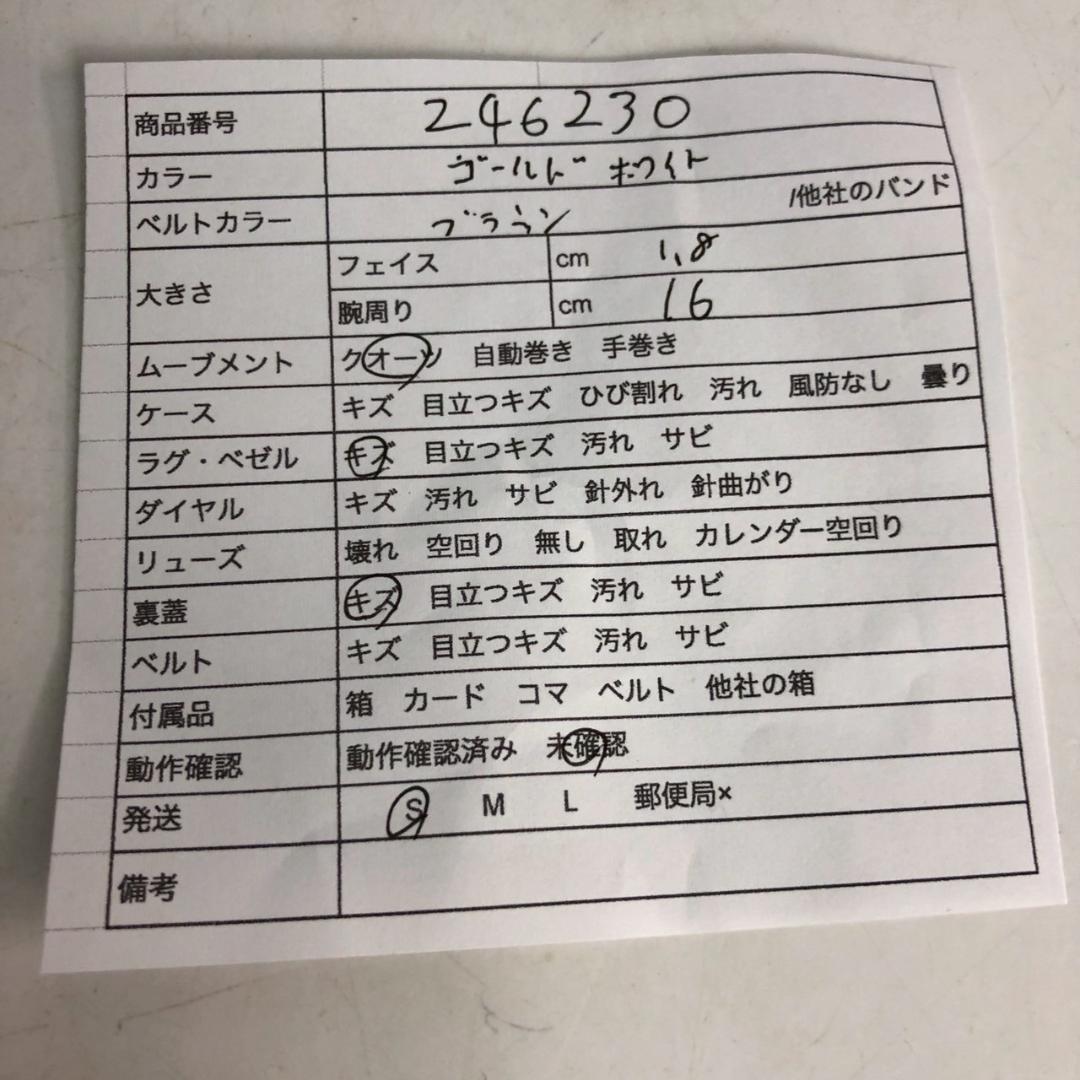 商品番号 246230
カラー ゴールド ホワイト
ベルトカラー ブラウン /他社のバンド
大きさ フェイス cm 1.8
腕周り cm 16
ムーブメント クオーツ 自動巻き 手巻き
ケース キズ 目立つキズ ひび割れ 汚れ 風防なし 曇り
ラグ・ベゼル キズ 目立つキズ 汚れ サビ
ダイヤル キズ 汚れ サビ 針外れ 針曲がり
リューズ 壊れ 空回り 無し 取れ カレンダー空回り
裏蓋 キズ 目立つキズ 汚れ サビ
ベルト キズ 目立つキズ 汚れ サビ
付属品 箱 カード コマ ベルト 他社の箱
動作確認 動作確認済み 未確認
発送 S M L 郵便局×
備考